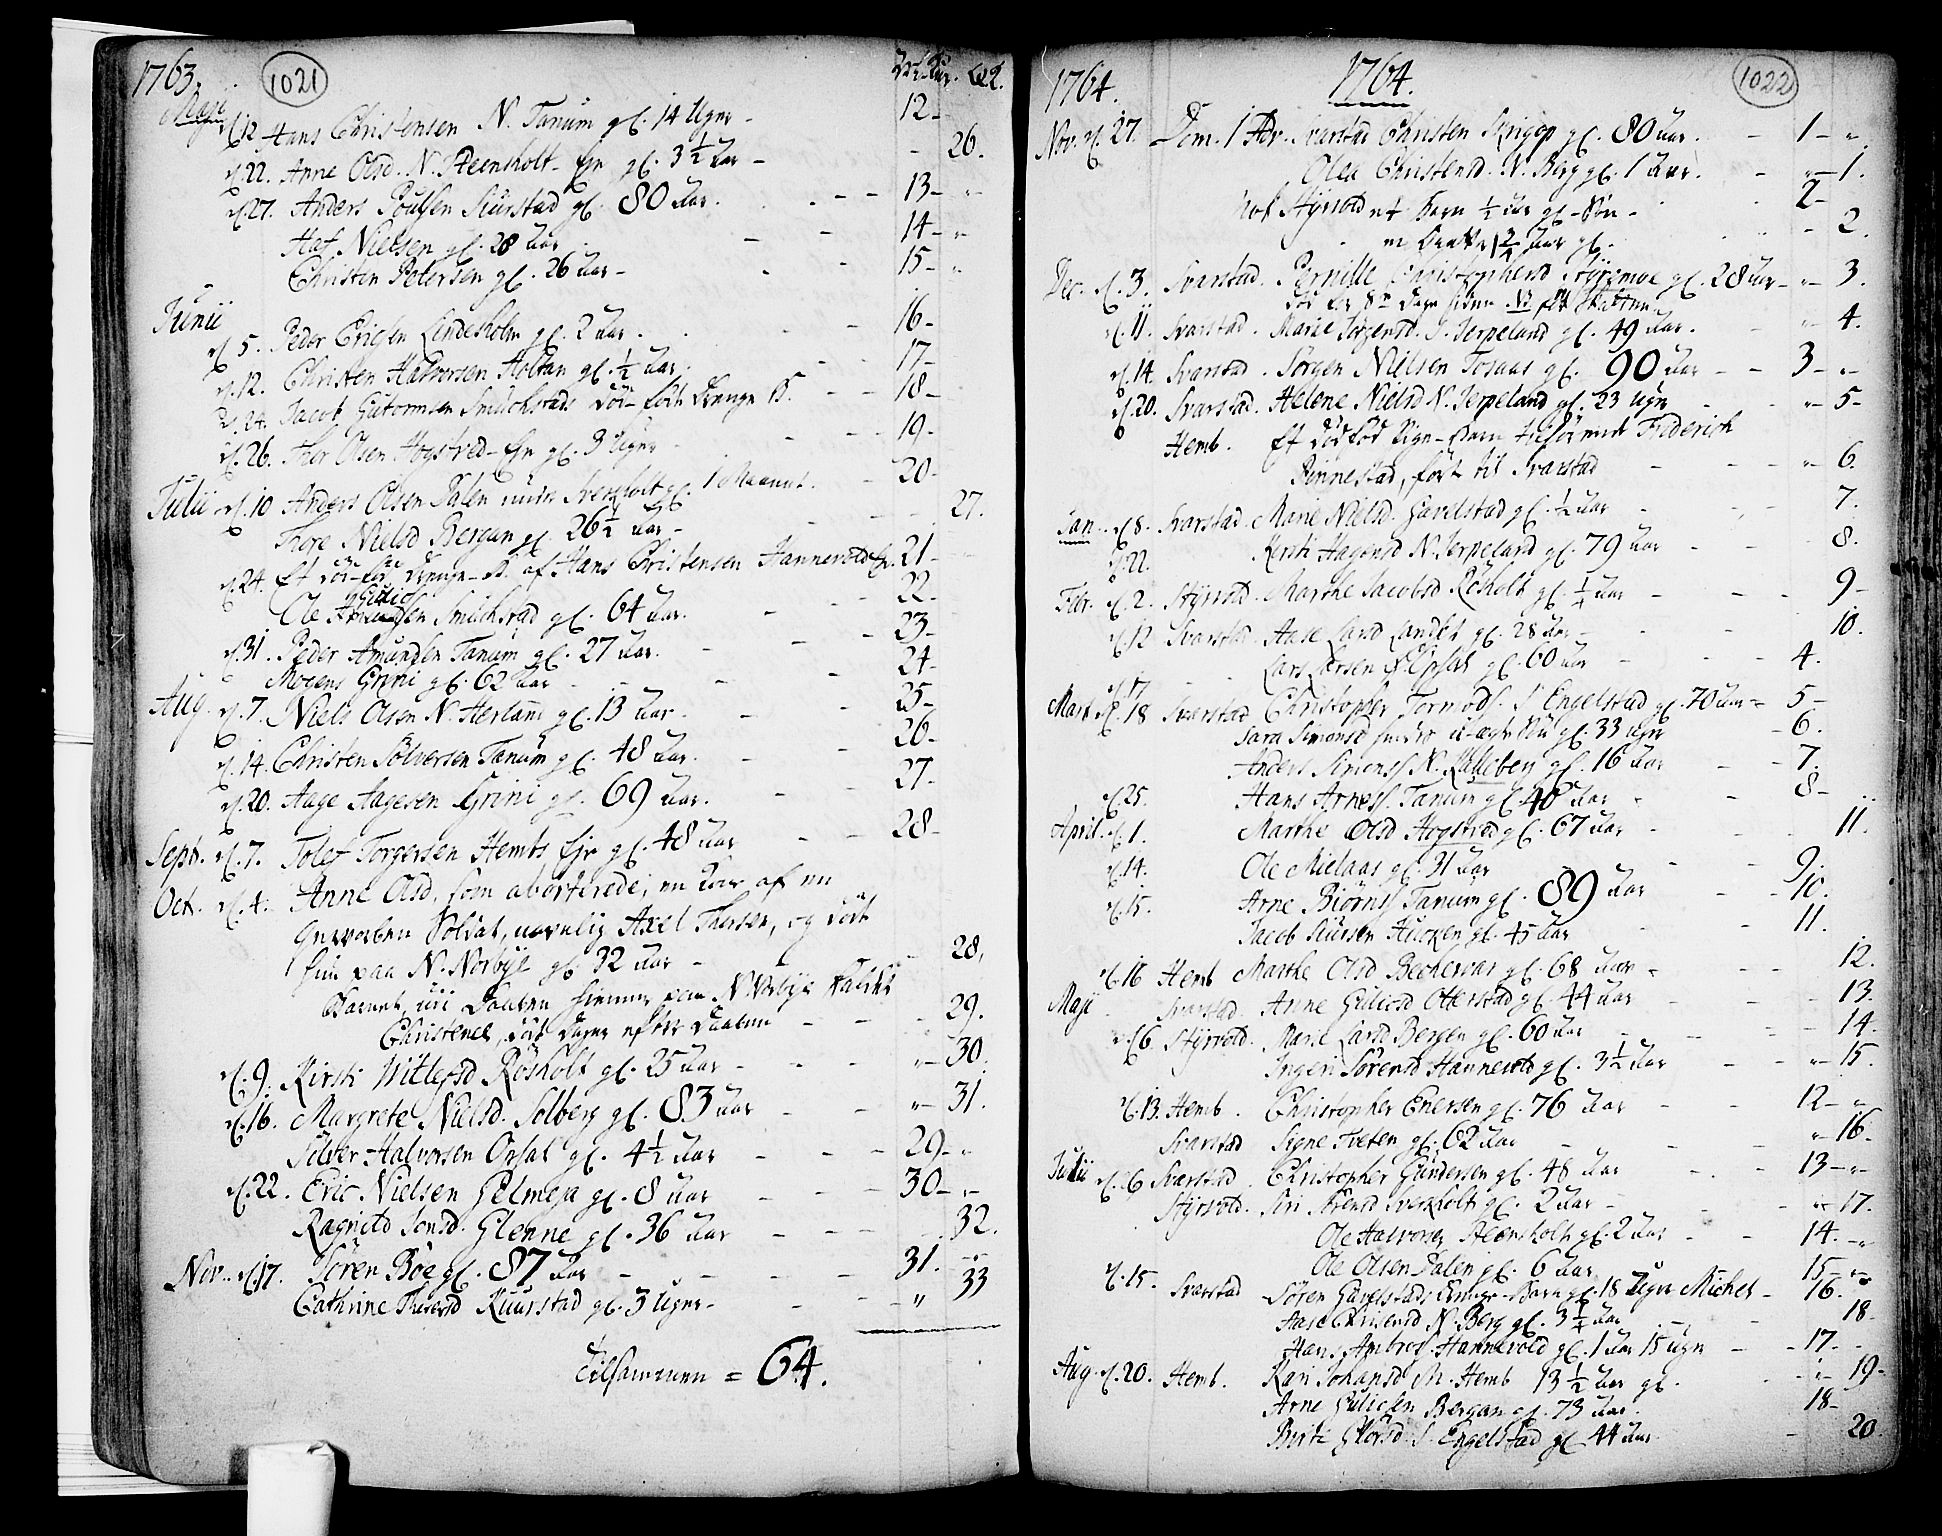 1763.
1021
Qv.
Maji
d. 12. Hans Christensen N. Tanum gl. 14 Uger - 12 -
d. 22. Anne Olsd. N. Steensholt - gl. 3 1/2 Aar - 26.
d. 27. Anders Poulsen Kuurstad gl. 80 Aar. - 13 - "
Haf Nielsen gl. 28 Aar - 14 - "
Christen Petersen gl. 26 Aar - 15 - "
Junii
d. 5. Peder Ericsen Lindesholm gl. 2 Aar. 16 -
d. 12. Christen Halvorsen Holtan gl. 1/2 Aar. 17 -
d. 24. Jacob Gutormsen Smuchstads död-född Drenge B. 18 -
d. 26. Thor Olsen Hogstved - gl. 3 Uger 19 -
Julii d. 10 Anders Olsen Dalen under Sverholt gl. 1 Maaned. 20 -
Thore Nielsd Bergan gl. 26 1/2 Aar - 27.
d. 24. Et död-föd Drenge-B. af Hans Christensen Hannevold 21 -
Ole Gulicsen Smuchstad gl. 64 Aar. 22 -
d. 31. Peder Amundsen Tanum gl. 27 Aar. 23 -
Mogens Grini gl. 62 Aar 24 -
Aug. d. 7. Niels Olsen N. Herland gl. 13 Aar. 25 -
d. 14. Christen Solversen Tanum gl. 48 Aar. 26 -
d. 20. Aage Aagesen Grini gl. 69 Aar. 27 -
Sept. d. 7. Tolef Torgersen Hembs gl. 48 Aar 28 -
Oct. d. 4. Anne Olsd. som aborterede, en Kone af en
Gevorben Soldat, navnlig Axel Thersen, og död
hun paa N. Norbye gl. 32 Aar - 28.
Barnet, ved Daaben hiemme paa N. Norbye kaldet
Christence, död Dagen efter Daaben 29.
d. 9. Kirsti Wittefsd Rösholt gl. 25 Aar - " - 30.
d. 16. Margrete Nielsd. Solberg gl. 83 Aar - " - 31.
Silver Halvorsen Opsal gl. 4 1/2 Aar 29 - "
d. 22. Eric Nielsen Gelmeja gl. 8 Aar 30 - "
Ragnild Jonsd. Glenne gl. 36 Aar 32.
Nov. d. 17. Sören Böe gl. 87 Aar 31. - "
Cathrine Thoresd Kuurstad gl. 3 Uger - " 33
Tilsammen = 64.
1764.
1764.
1022
Nov. d. 27. Dom. 1 Adv. Svarstad Christen Skrigop gl. 80 Aar. - 1 - "
Olea Christensd. N. Berg gl. 1 Aar. - " - 1.
Styrvold et Barn 1/2 Aar gl. - Sön - 2 -
3/4 Aar gl. 2.
Dec. d. 3. Svarstad. Pernille Christophersd Styremoe gl. 28 Aar - " - 3.
d. 11. Svarstad. Marie Jörgensd. S. Jerpeland gl. 49 Aar. " 4.
d. 14. Svarstad. Jörgen Nielsen Fosaas gl. 90 Aar - 3 - "
d. 20. Svarstad. Helene Nielsd N. Jerpeland gl. 23 Uger " - 5 -
Hemb. Et dödföd Pige-Barn tilhörende Friderich
Rinnestad, fört til Svarstad " - 6.
Jan. d. 8. Svarstad. Marie Nielsd. Gavelstad gl. 1/2 Aar 7.
d. 22. Kirsti Hagensd N. Jerpeland gl. 79 Aar 8.
Febr. d. 2. Styrvold. Marthe Jacobsd Rösholt gl. 1/4 Aar 9 -
d. 12 Svarstad. Aase Larsd Landet gl. 28 Aar - 10.
d. 17 Lars Larsen Opsal gl. 60 Aar 4.
Mart. d. 18 Svarstad Christopher Tormods. S. Engelstad gl. 70 Aar - 5 -
Sara Simonsd gl. 33 Uger - 6.
Anders Simons. N. Kalleberg gl. 16 Aar 7.
d. 25. Hans Arness. Tanum gl. 40 Aar 8 -
April. d. 1. Marthe Olsd Hogstved gl. 67 Aar 11.
d. 14. Ole Mielaas gl. 31 Aar 9.
d. 15. Arne Biörns. Tanum gl. 89 Aar 10.
Jacob Siursen Hucken gl. 45 Aar 11.
d. 16 Hemb Marthe Olsd Beckevar gl. 68 Aar - 12.
Maji Svarstad. Anne Gulicsd Otterstad gl. 44 Aar 13.
d. 6. Styrvold. Marie Larsd Bergen gl. 60 Aar 14 -
Ingeri Sörensd Hannevold gl. 3 1/2 Aar " - 15.
d. 13. Hemb. Christopher Enersen gl. 76 Aar - 12 - "
Svarstad Signe Tveten gl. 62 Aar " - 16.
Julii d. 6 Svarstad. Christopher Gundersen gl. 48 Aar 13 - "
Styrvold. Siri Sörensd Sverholt gl. 2 Aar - " 17.
Ole Halvorsen Steensholt gl. 2 Aar 14. - "
Ole Olsen Dalen gl. 6 Aar 15 - "
d. 15. Svarstad Sören Gavelstads Drenge-Barn gl. 18 Uger Michel - 16. -
Aase N. Berg gl. 3 1/4 Aar 18.
Hans Ambros. Hannevold gl. 1 Aar 15 Uger - 17. -
Aug. d. 20. Hemb. Kari Johansd M. Hemb 13 1/2 Aar gl. - " - 19 -
Arne Gulicsen Bergan gl. 73 Aar. 18 -
Birte S. Engelstad gl 44 Aar. - 20.